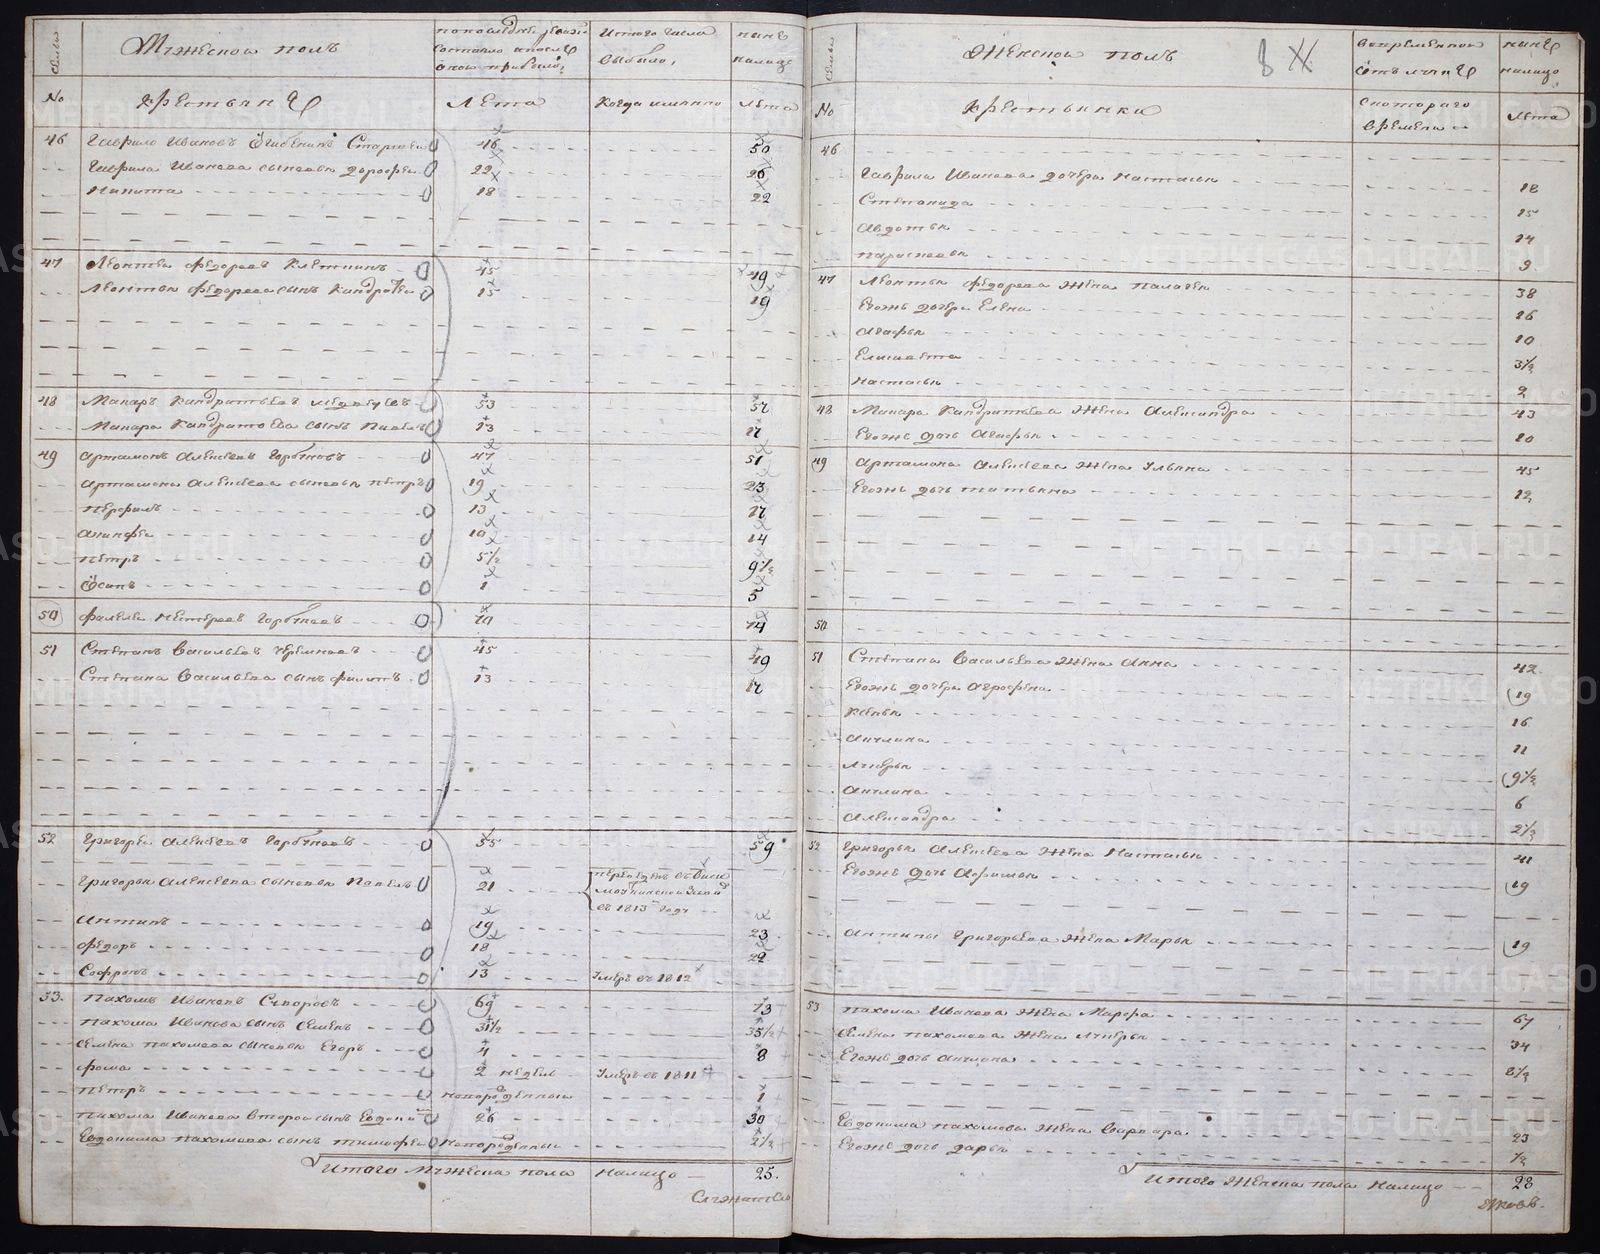 Семьи
Мужеской полъ
Итого числа
выбыло,
ныне
налицо
No
Крестьяне
Лета
Когда именно
Лета
46
Гаврило Ивановъ
46
50
Гаврила Иванова сыновья Дорофеи
22
26
Никита
18
22
47
Леонтеи Федоровъ
45
49
Леонтья Федорова сынъ Кандратеи
15
19
48
Макаръ Кандратьевъ
53
57
Макара Кандратьева сынъ Павелъ
13
17
49
Артамонъ Алексеевъ Горбуновъ
47
51
Артамона Алексеева сыновья Петръ
19
23
Перфилъ
13
17
10
14
Петръ
5½
9½
Осипъ
1
5
50
Горбуновъ
10
14
51
Степанъ Васильевъ
45
49
Степана Васильева сынъ Филипъ
13
17
52
Григореи Алексеевъ Горбуновъ
55
59
Григорья Алексеева сыновья Павелъ
21
въ 1813 годе
Антипъ
19
23
Федоръ
18
22
Софронъ
13
Умре въ 1812
53.
Пахомъ Ивановъ Суворовъ
69
73
Пахома Иванова сынъ Семенъ
31½
35½
Семена Пахомова сыновья Егоръ
4
8
Фома
2 недель
Умре въ 1811
Петръ
новорожденныи
1
Пахома Иванова второи сынъ Евдокимъ
26
30
Евдокима Пахомова сынъ Тимофеи
новорожденныи
2½
Итого мужеска пола налицо
25.
Служитель
Семьи
Женской полъ
8
Вовременнои
отлучке
ныне
налицо
No
Крестьянки
Скотораго
времени
Лета
46
Гаврила Иванова дочери Настасья
18
Степанида
15
Авдотья
14
Парасковья
9
47
Леонтья Федорова жена Палагея
38
Егожъ дочери Елена
16
Агафья
10
Елисавета
3½
Настасья
2
48
Макара Кандратьева жена Александра
43
Егожъ дочь Агафья
10
49
Артамона Алексеева жена Ульяна
45
Егожъ дочь Татьяна
12
50
51
Степана Васильева жена Анна
42
Егожъ дочери Агрофена
19
Ксенья
16
Акулина
11
Лукерья
9½
Акулина
6
Александра
2½
52
Григорья Алексеева жена Настасья
41
Егожъ дочь Афимья
19
Антипы Григорьева жена Марья
19
53
Пахома Иванова жена Марфа
67
Семена Пахомова жена Лукерья
34
Егожъ дочь Акулина
8½
Евдокима Пахомова жена Варвара
23
Егожъ дочь Дарья
½
Итого женска пола налицо
28